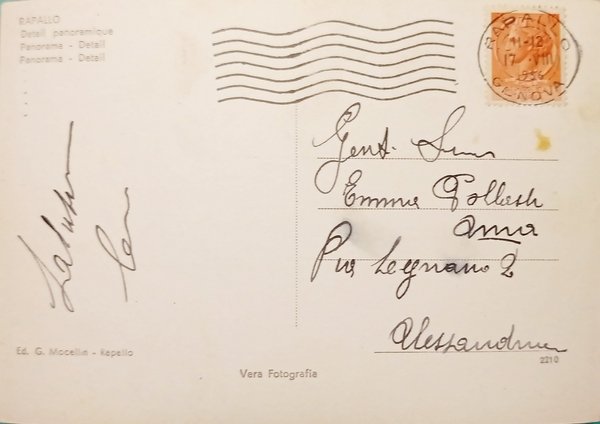 RAPALLO
Detail panoramique
Panorama - Detail
Panorama - Detail
RAPALLO
11-12
17 VIII
GENOVA
Gent.
Emma
Anna
Legnano 2
Alessandria
Saluti
Ed. G. Mocellin - Rapallo
2210
Vera Fotografia